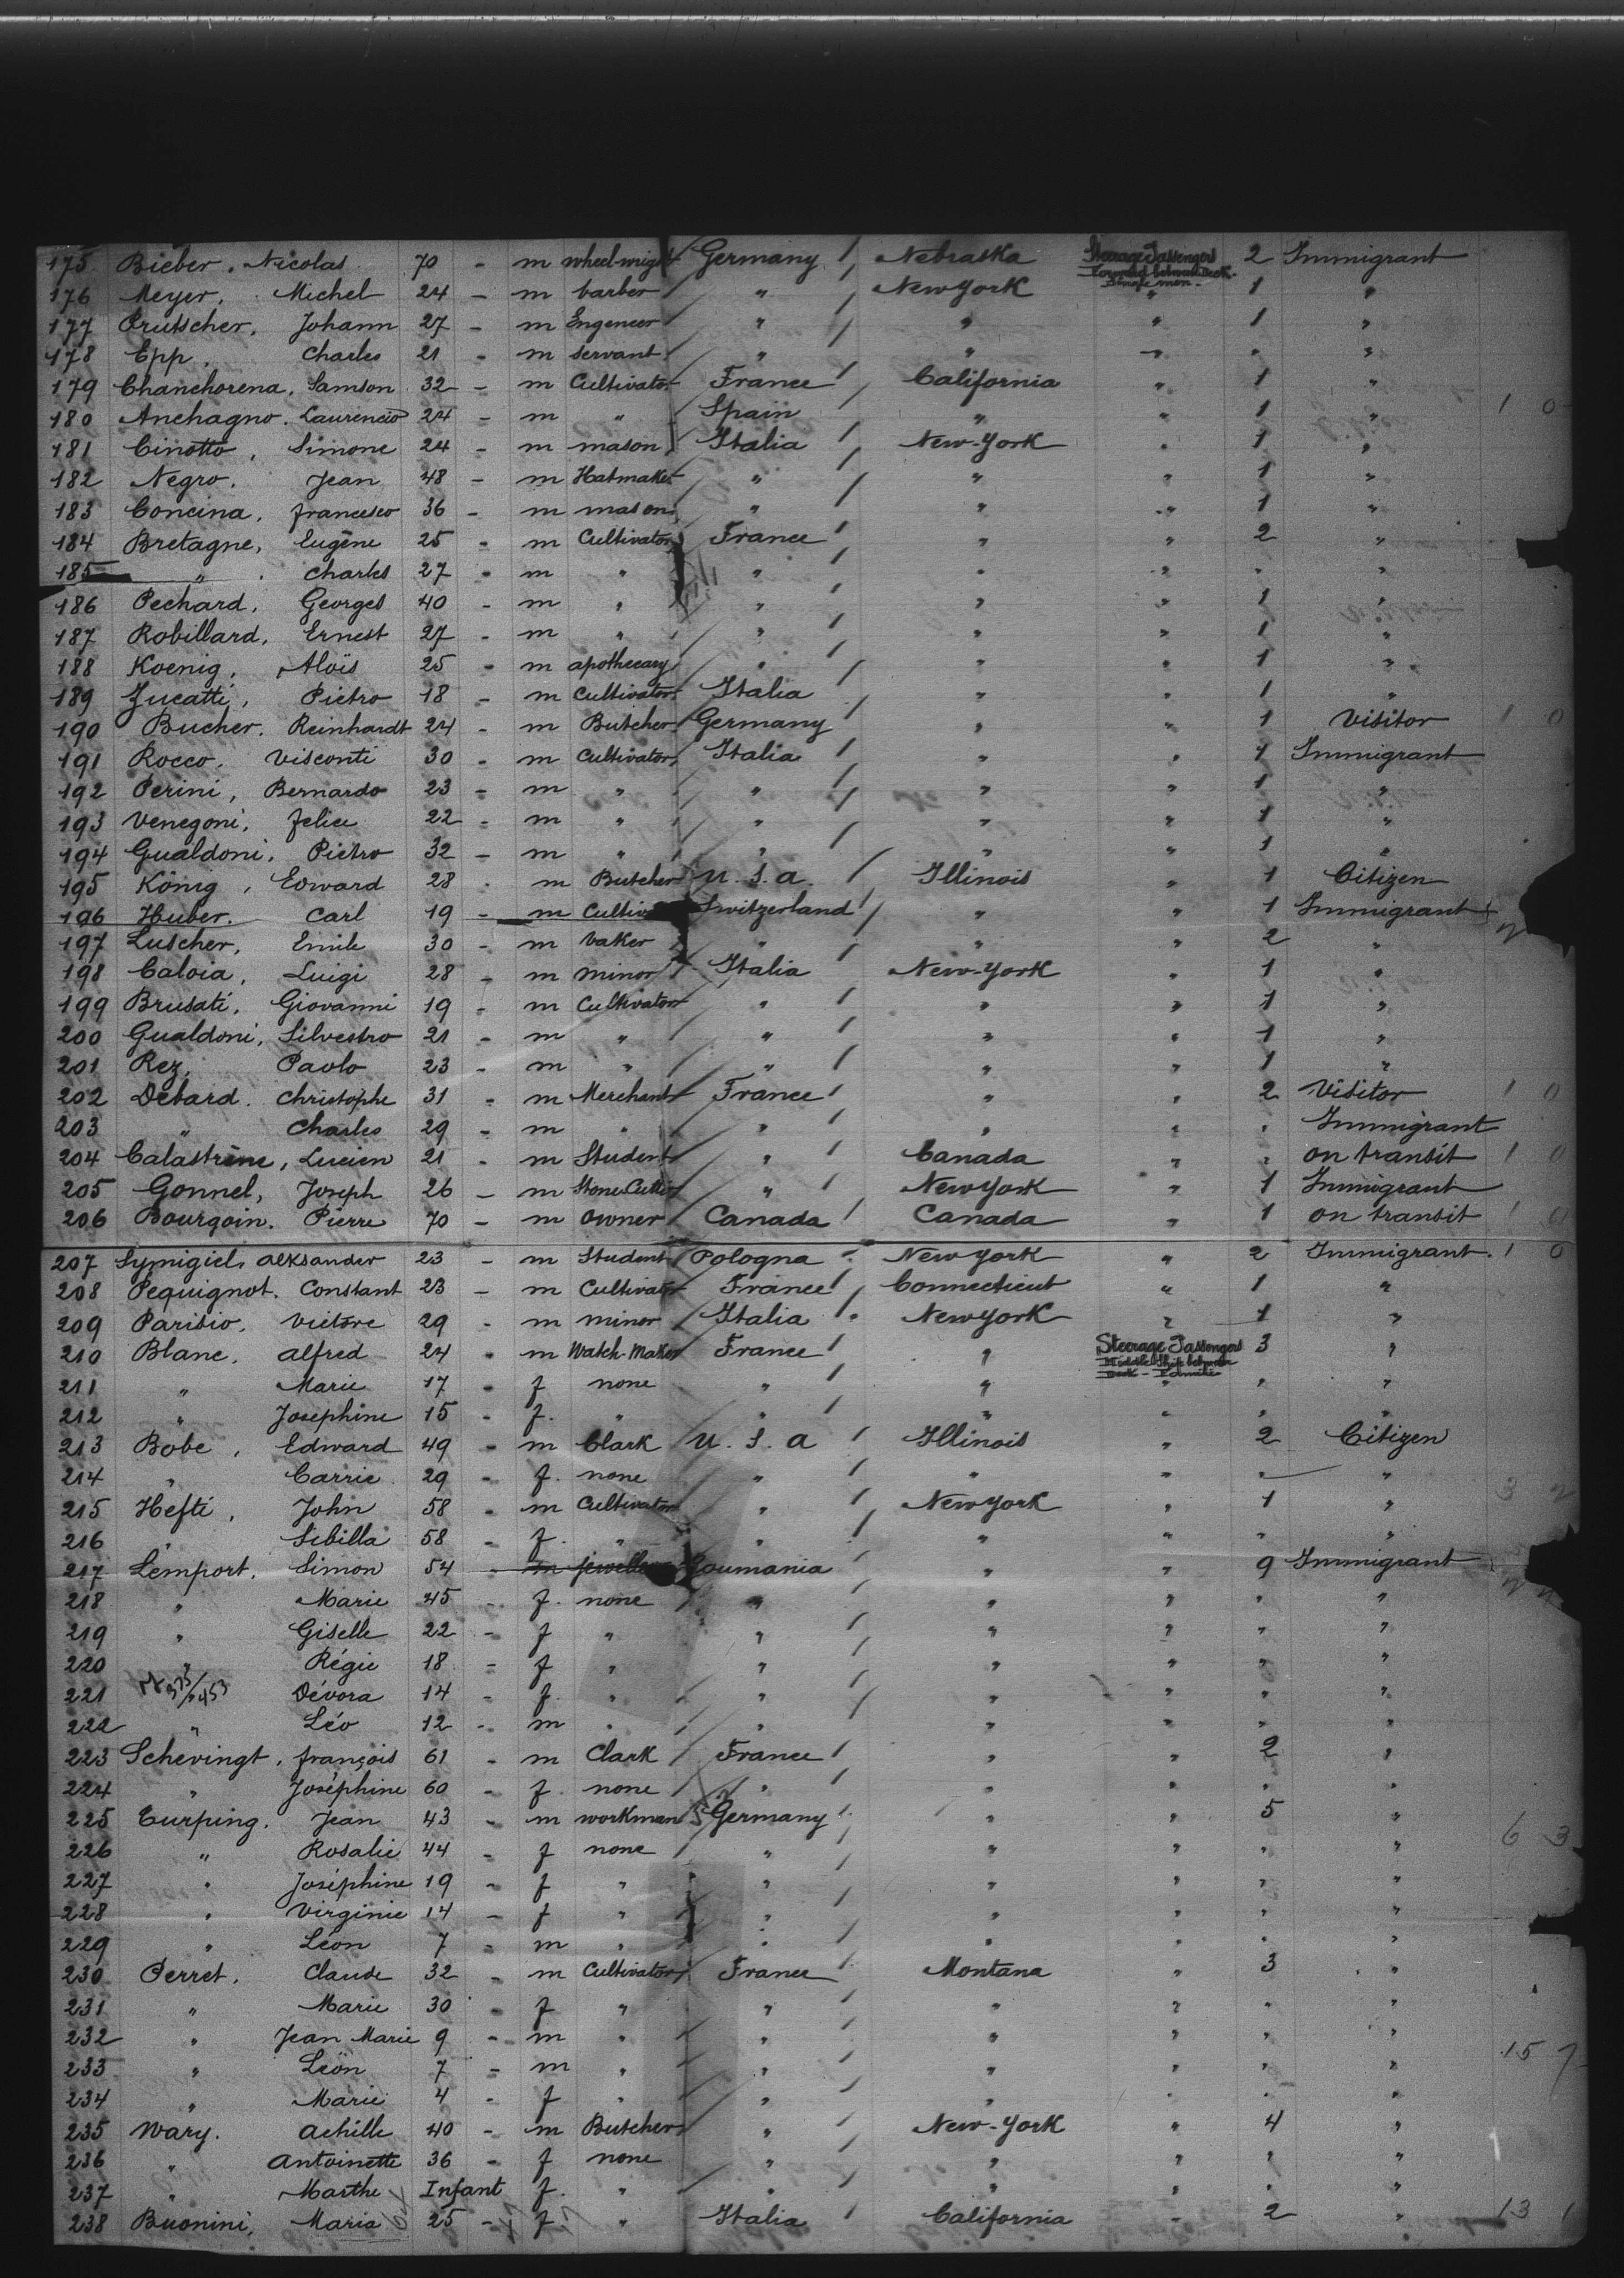 175 Bieber. Nicolas 70 - m wheel-wright Germany / Nebraska Steerage Passengers 2 Immigrant
Forward between Deck.
Single men.
176 Meyer. Michel 24 - m barber " / New York " 1 "
177 Prutscher. Johann 27 - m Engeneer " / " " 1 "
178 Epp. Charles 21 - m servant " / " " " "
179 Chanchorena. Samson 32 - m Cultivator France / California " 1 "
180 Anchagno. Laurencio 24 - m " Spain " " 1 " 1 0
181 Cinotto, Simone 24 - m mason Italia / New-York " 1 "
182 Negro. Jean 48 - m Hatmaker " / " " 1 "
183 Concina, francesco 36 - m mason " / " " 1 "
184 Bretagne, Eugène 25 - m Cultivator France / " " 2 "
185 " Charles 27 - m " " / " " " "
186 Pechard. Georges 40 - m " " / " " 1 "
187 Robillard, Ernest 27 - m " " / " " 1 "
188 Koenig, Aloïs 25 - m apothecary " / " " 1 "
189 Zucatti, Pietro 18 - m Cultivator Italia / " " 1 "
190 Bucher. Reinhardt 24 - m Butcher Germany / " " 1 Visitor 1 0
191 Rocco. Visconti 30 - m Cultivator Italia / " " 1 Immigrant
192 Perini, Bernardo 23 - m " " / " " 1 "
193 Venegoni, felice 22 - m " " / " " 1 "
194 Gualdoni, Pietro 32 - m " " / " " 1 "
195 König, Edward 28 - m Butcher U.S.a. / Illinois " 1 Citizen
196 Huber. Carl 19 - m Cultiv Switzerland / " " 1 Immigrant
197 Luscher, Emile 30 - m baker " / " " 2 "
198 Caloia, Luigi 28 - m minor Italia / New-York " 1 "
199 Brusati, Giovanni 19 - m Cultivator " / " " 1 "
200 Gualdoni, Silvestro 21 - m " " / " " 1 "
201 Rez, Paolo 23 - m " " / " " 1 "
202 Debard. Christophe 31 - m Merchant France / " " 2 Visitor 1 0
203 " Charles 29 - m " " / " " " Immigrant
204 Calastrème, Lucien 21 - m Student " / Canada " " on transit 1 0
205 Gonnel, Joseph 26 - m Stone Cutter " / New York " 1 Immigrant
206 Bourgoin. Pierre 70 - m owner Canada / Canada " 1 on transit 1 0
207 Symigiel, Aleksander 23 - m Student Pologna New York " 2 Immigrant. 1 0
208 Pequignot. Constant 23 - m Cultivator France / Connecticut " 1 "
209 Parisio, Victore 29 - m minor Italia New York " 1 "
210 Blanc, Alfred 24 - m Watch-Maker France / " Steerage Passengers 3 "
Middle Ship between
211 " Marie 17 - f none " / " " " "
212 " Josephine 15 - f. " " / " " " "
213 Bobe, Edward 49 - m Clark U.S.a / Illinois " 2 Citizen
214 " Carrie 29 - f. none " / " " " "
215 Hefti, John 58 - m Cultivator " / New York " 1 " 3 2
216 " Sibilla 58 - f. " " / " " " "
217 Lemport. Simon 54 - m jewelle Roumania / " " 9 Immigrant
218 " Marie 45 - f. none " / " " " "
219 " Giselle 22 - f " " / " " " "
220 " Régie 18 - f " " / " " " "
221 " Dévora 14 - f. " " / " " " "
222 " Léo 12 - m " " / " " " "
223 Schevingt, françois 61 - m Clark France / " " 2 "
224 " Joséphine 60 - f. none " / " " " "
225 Curping. Jean 43 - m workman Germany / " " 5 "
226 " Rosalie 44 - f none " / " " " " 6 3
227 " Joséphine 19 - f " " / " " " "
228 " Virginie 14 - f " " / " " " "
229 " Léon 7 - m " " / " " " "
230 Perret, Claude 32 - m Cultivator France / Montana " 3 "
231 " Marie 30 - f " " / " " " "
232 " Jean Marie 9 - m " " / " " " "
233 " Léon 7 - m " " / " " " " 15 7
234 " Marie 4 - f " " / " " " "
235 Wary. Achille 40 - m Butcher " / New-York " 4 "
236 " Antoinette 36 - f none " / " " " "
237 " Marthe Infant f. " " / " " " "
238 Buonini, Maria 25 - f " Italia / California " 2 " 13 1